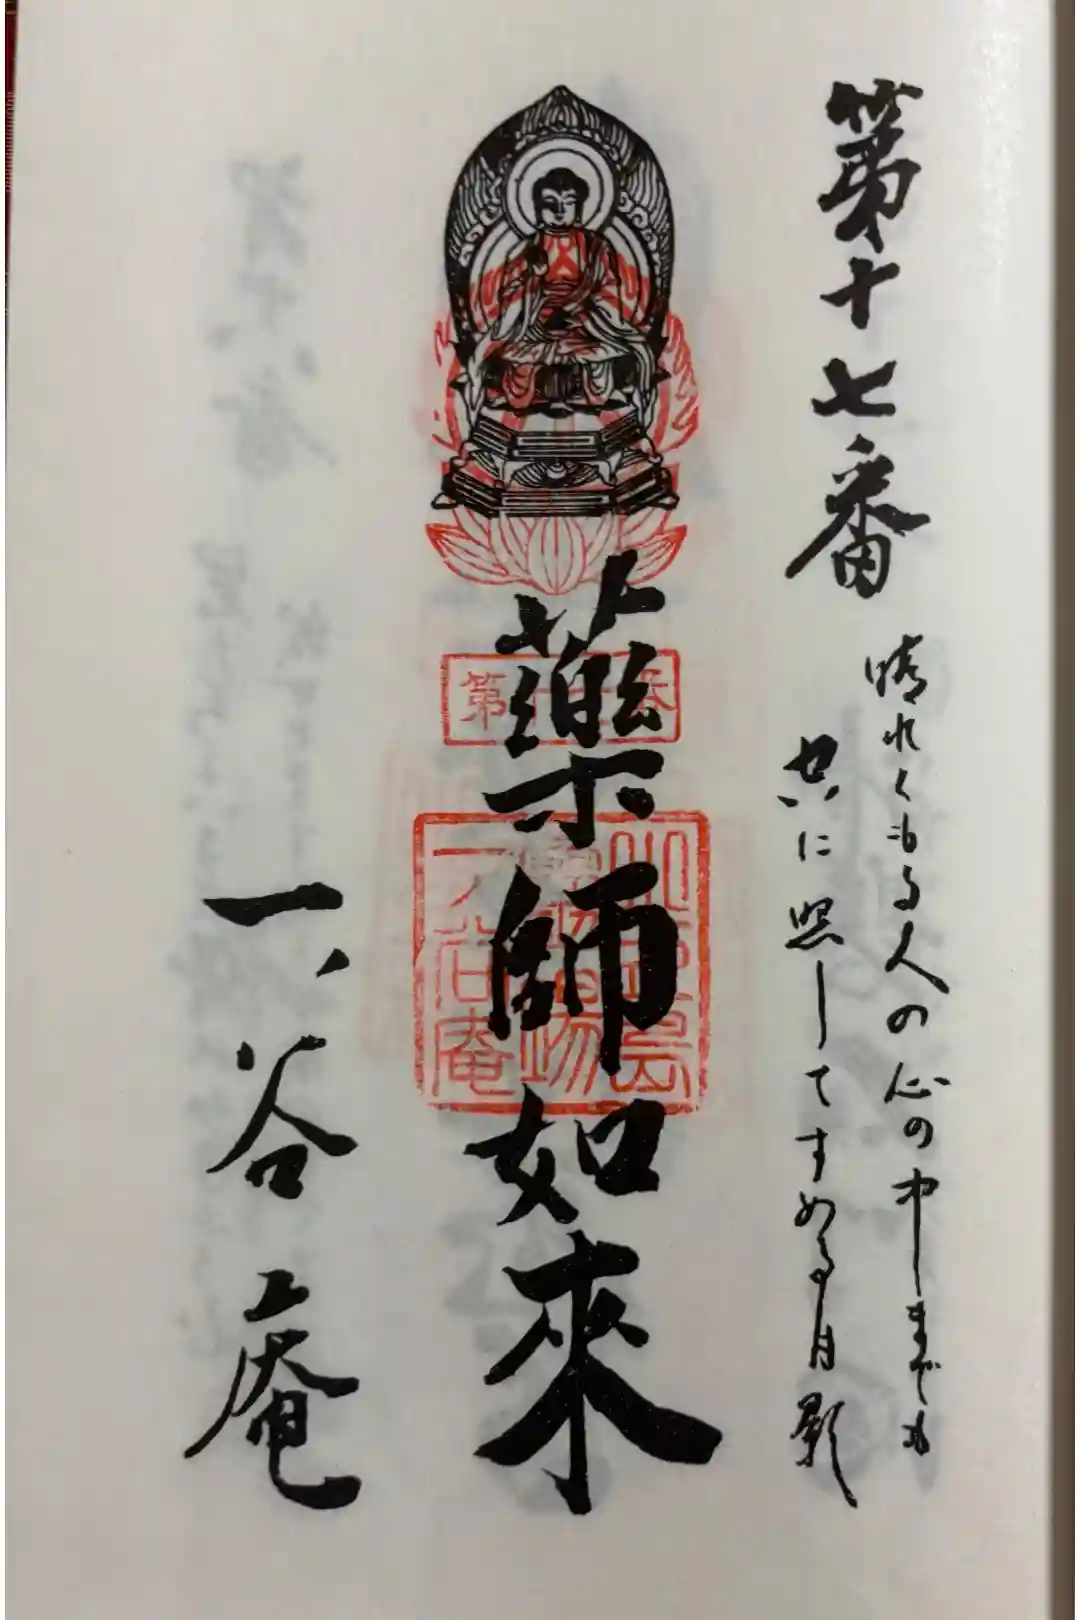 第十七番
晴れくもる人の心の中しまでも
共に照してすめる月影
藥師如來
第十七番
小豆島
霊場
一ノ谷庵
一ノ谷庵